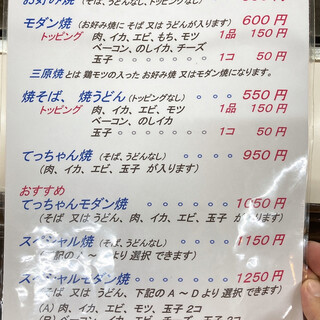 お好み焼 (そば、うどんなし)
モダン焼 (お好み焼に そば 又は うどんが入ります) 600円
トッピング 肉、イカ、エビ、もち、モツ 1品 150円
ベーコン、のしイカ、チーズ
玉子 ・・・・・・・・ 1コ 50円
三原焼 とは 鶏モツの入った お好み焼 又は モダン焼になります。
焼そば、 焼うどん (トッピングなし) 。。。 550円
トッピング 肉、イカ、エビ、モツ 1品 150円
ベーコン、のしイカ
玉子 ・・・・・・・・ 1コ 50円
てっちゃん焼 (そば、うどんなし) 。。。。 950円
(肉、イカ、エビ、玉子 が入ります)
おすすめ
てっちゃんモダン焼 。。。。。。 1050円
(そば 又は うどん、肉、イカ、エビ、玉子 が入ります)
スペシャル焼 (そば、うどんなし) 。。。。 1150円
記の A ～ D より 選択 できます)
スペシャルモダン焼 。。。。。 1250円
又は うどん、下記の A ～ D より 選択 できます)
(A) 肉、イカ、エビ、モツ、玉子 2コ